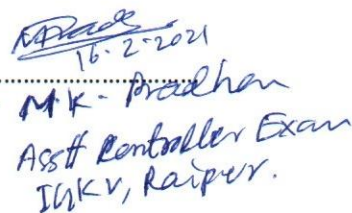 16-2-2021
M.K. Pradhan
Asstt Controller Exam
IGKV, Raipur.